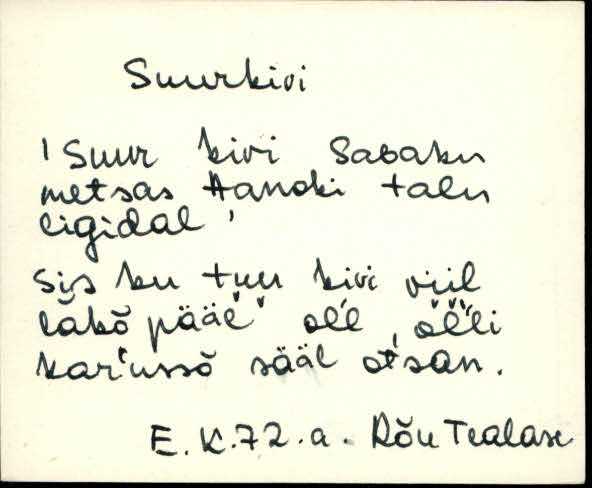 Suurkivi
'Suur kivi Sabaku
metsas Handki talu
ligidal'
Sis ku tuu kivi viil
läkõ pääl oĺl, õĺli
kaŕussõ sääl otsan.
E.K.72.a. Rõu Tealase